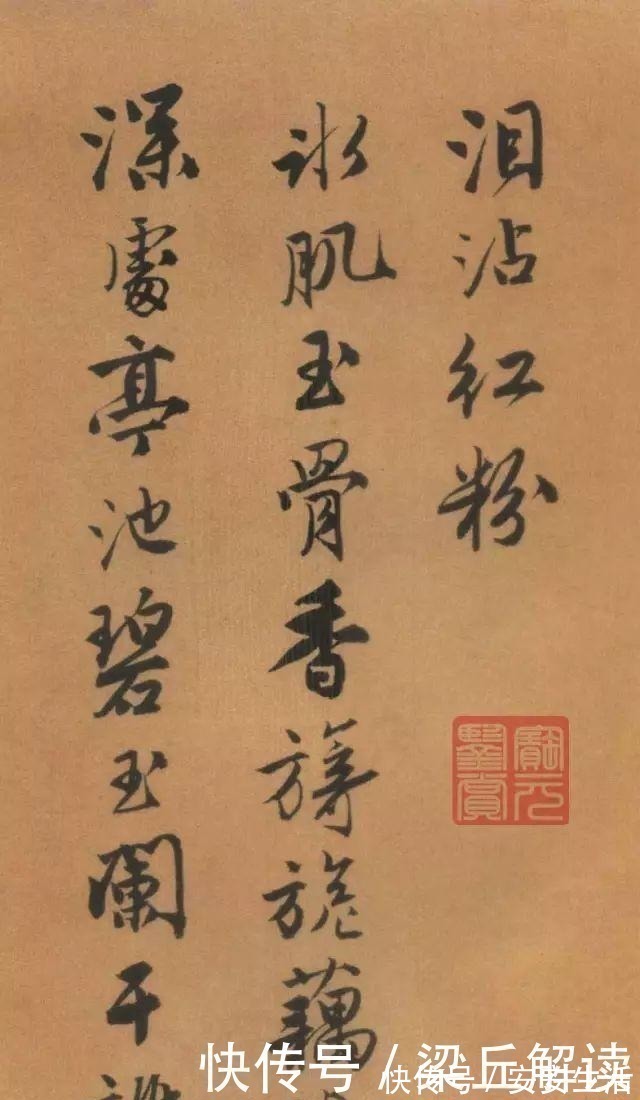 泪沾红粉
冰肌玉骨香旖旎藕
深處亭池碧玉闌干
寶元鑒賞
快传号/梁丘解读
快传号/安安生活